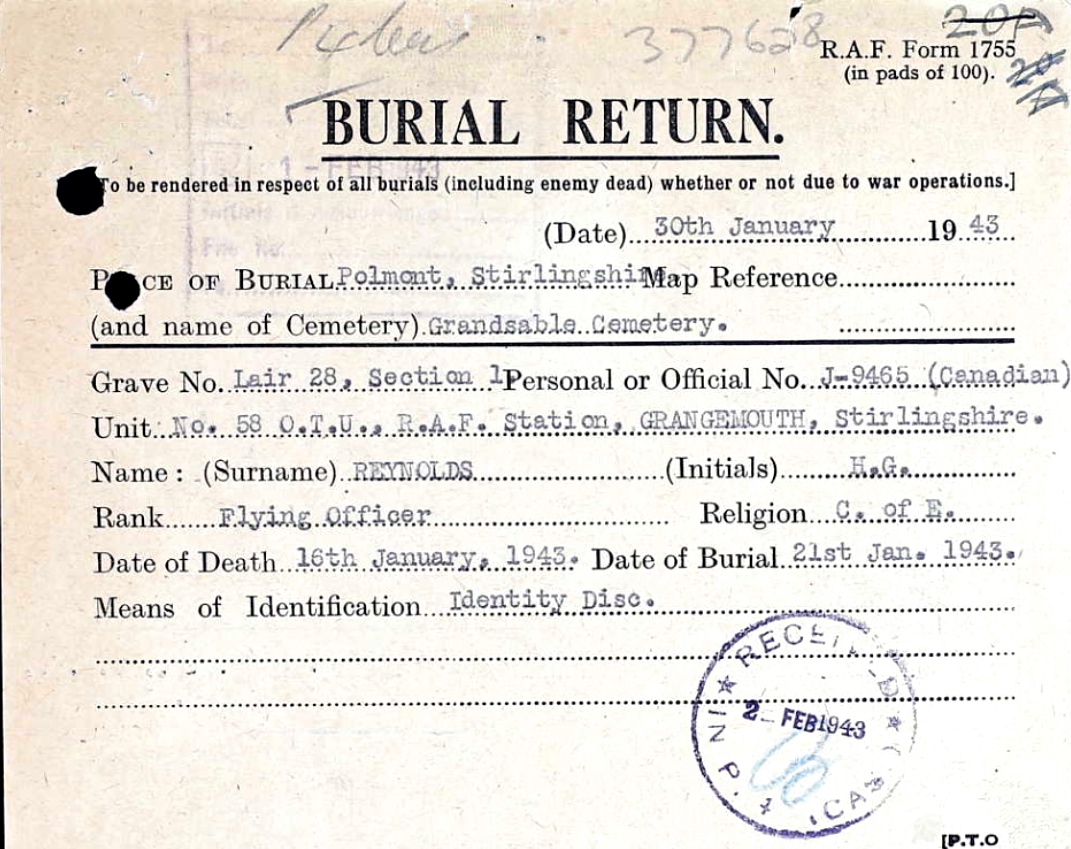 377628
20A
R.A.F. Form 1755
(in pads of 100).
BURIAL RETURN.
1 - FEB 1943
To be rendered in respect of all burials (including enemy dead) whether or not due to war operations.]
(Date) 30th January 1943
File No.
PLACE OF BURIAL Polmont, Stirlingshire Map Reference
(and name of Cemetery) Grandsable Cemetery.
Grave No. Lair 28, Section 1 Personal or Official No. J-9465 (Canadian)
Unit No. 58 O.T.U., R.A.F. Station, GRANGEMOUTH, Stirlingshire.
Name: (Surname) REYNOLDS (Initials) H.G.
Rank Flying Officer Religion C. of E.
Date of Death 16th January, 1943. Date of Burial 21st Jan. 1943.
Means of Identification Identity Disc.
RECEIVED
2 - FEB 1943
IN P. 4 (CAS)
[P.T.O